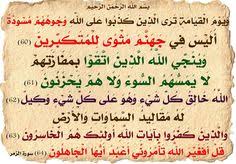 بسم الله الرحمن الرحيم
وَيَوْمَ الْقِيَامَةِ تَرَى الَّذِينَ كَذَبُوا عَلَى اللَّهِ وُجُوهُهُمْ مُسْوَدَّةٌ
أَلَيْسَ فِي جَهَنَّمَ مَثْوًى لِلْمُتَكَبِّرِينَ (60)
وَيُنَجِّي اللَّهُ الَّذِينَ اتَّقَوْا بِمَفَازَتِهِمْ
لَا يَمَسُّهُمُ السُّوءُ وَلَا هُمْ يَحْزَنُونَ (61)
اللَّهُ خَالِقُ كُلِّ شَيْءٍ وَهُوَ عَلَى كُلِّ شَيْءٍ وَكِيلٌ (62)
لَهُ مَقَالِيدُ السَّمَاوَاتِ وَالْأَرْضِ
وَالَّذِينَ كَفَرُوا بِآيَاتِ اللَّهِ أُولَئِكَ هُمُ الْخَاسِرُونَ (63)
قُلْ أَفَغَيْرَ اللَّهِ تَأْمُرُونِّي أَعْبُدُ أَيُّهَا الْجَاهِلُونَ (64) سورة الزمر